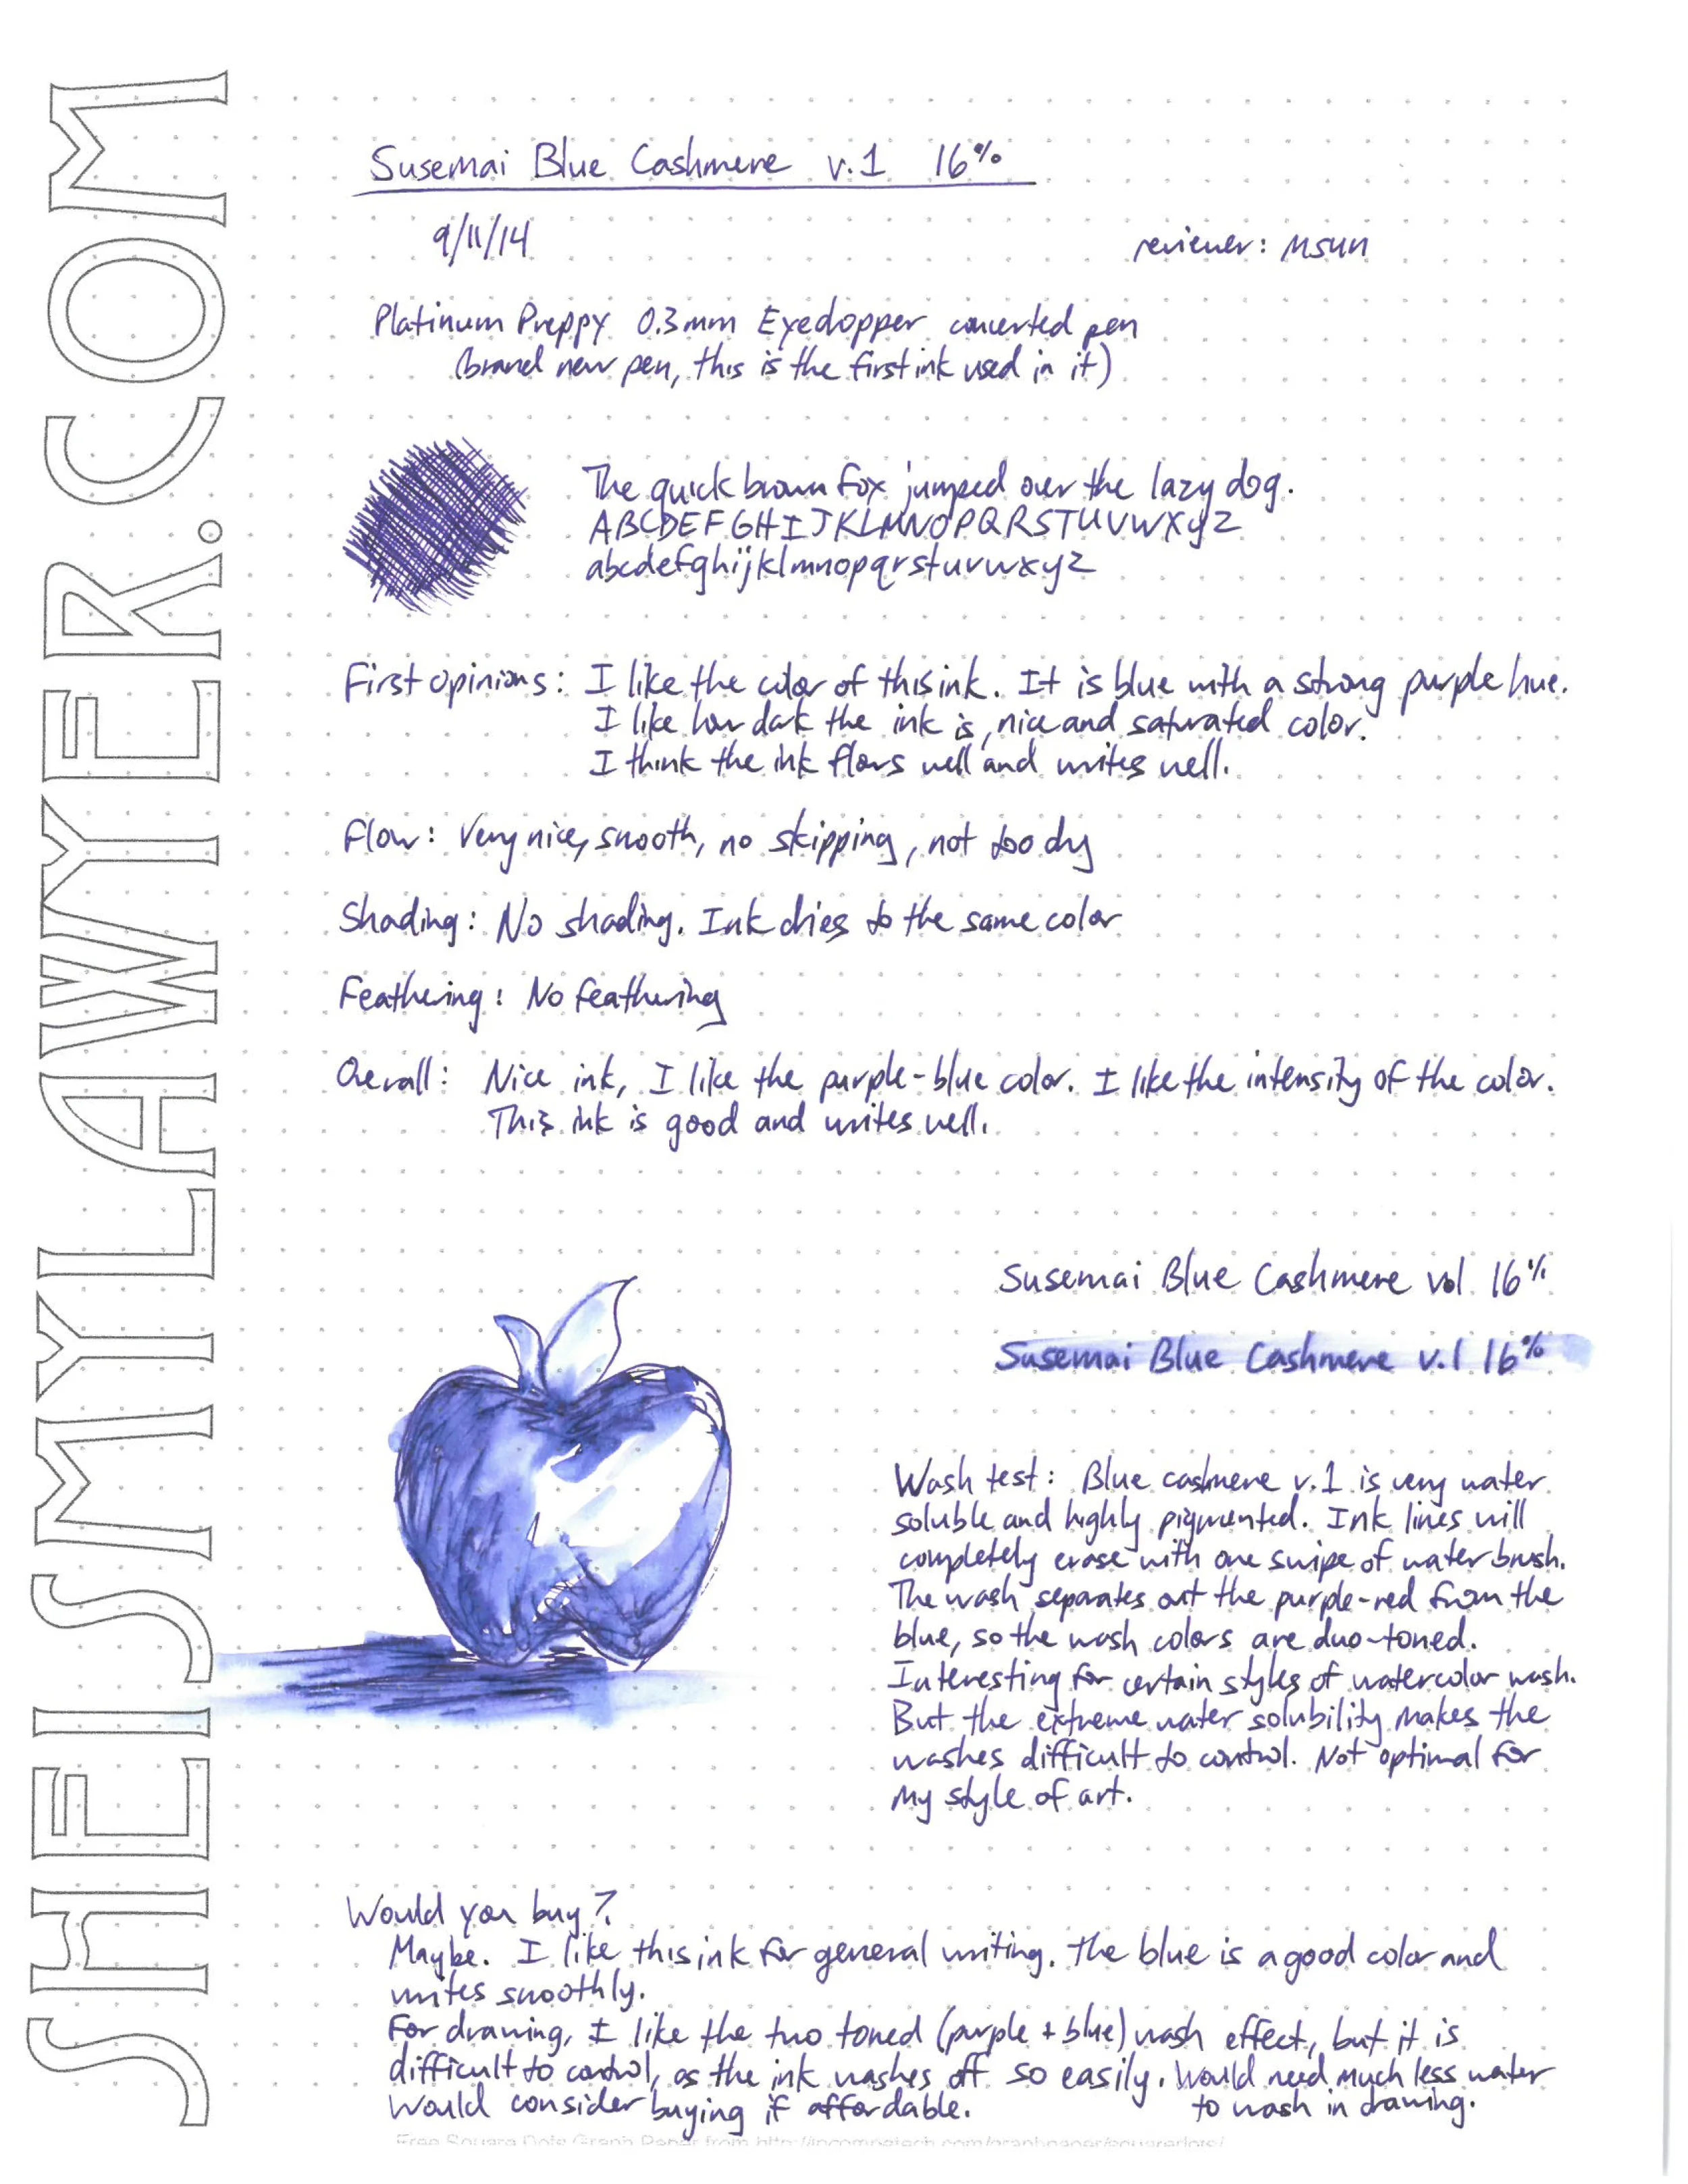 SHEISMYLAWYER.COM
Susemai Blue Cashmere v.1 16%
9/11/14
reviewer: MSUN
Platinum Preppy 0.3mm Eyedopper converted pen
(brand new pen, this is the first ink used in it)
The quick brown fox jumped over the lazy dog.
ABCDEFGHIJKLMNOPQRSTUVWXYZ
abcdefghijklmnopqrstuvwxyz
First opinions: I like the color of this ink. It is blue with a strong purple hue.
I like how dark the ink is, nice and saturated color.
I think the ink flows well and writes well.
Flow: Very nice, smooth, no skipping, not too dry
Shading: No shading. Ink dries to the same color
Feathering: No feathering
Overall: Nice ink, I like the purple-blue color. I like the intensity of the color.
This ink is good and writes well.
Susemai Blue Cashmere vol 16%
Susemai Blue Cashmere v.1 16%
Wash test: Blue cashmere v.1 is very water
soluble and highly pigmented. Ink lines will
completely erase with one swipe of water brush.
The wash separates out the purple-red from the
blue, so the wash colors are duo-toned.
Interesting for certain styles of watercolor wash.
But the extreme water solubility makes the
washes difficult to control. Not optimal for
my style of art.
Would you buy?
Maybe. I like this ink for general writing. The blue is a good color and
writes smoothly.
For drawing, I like the two toned (purple + blue) wash effect, but it is
difficult to control, as the ink washes off so easily. Would need much less water
to wash in drawing.
Would consider buying if affordable.
Free Square Dots Graph Paper from http://incompetech.com/graphpaper/squaredots/